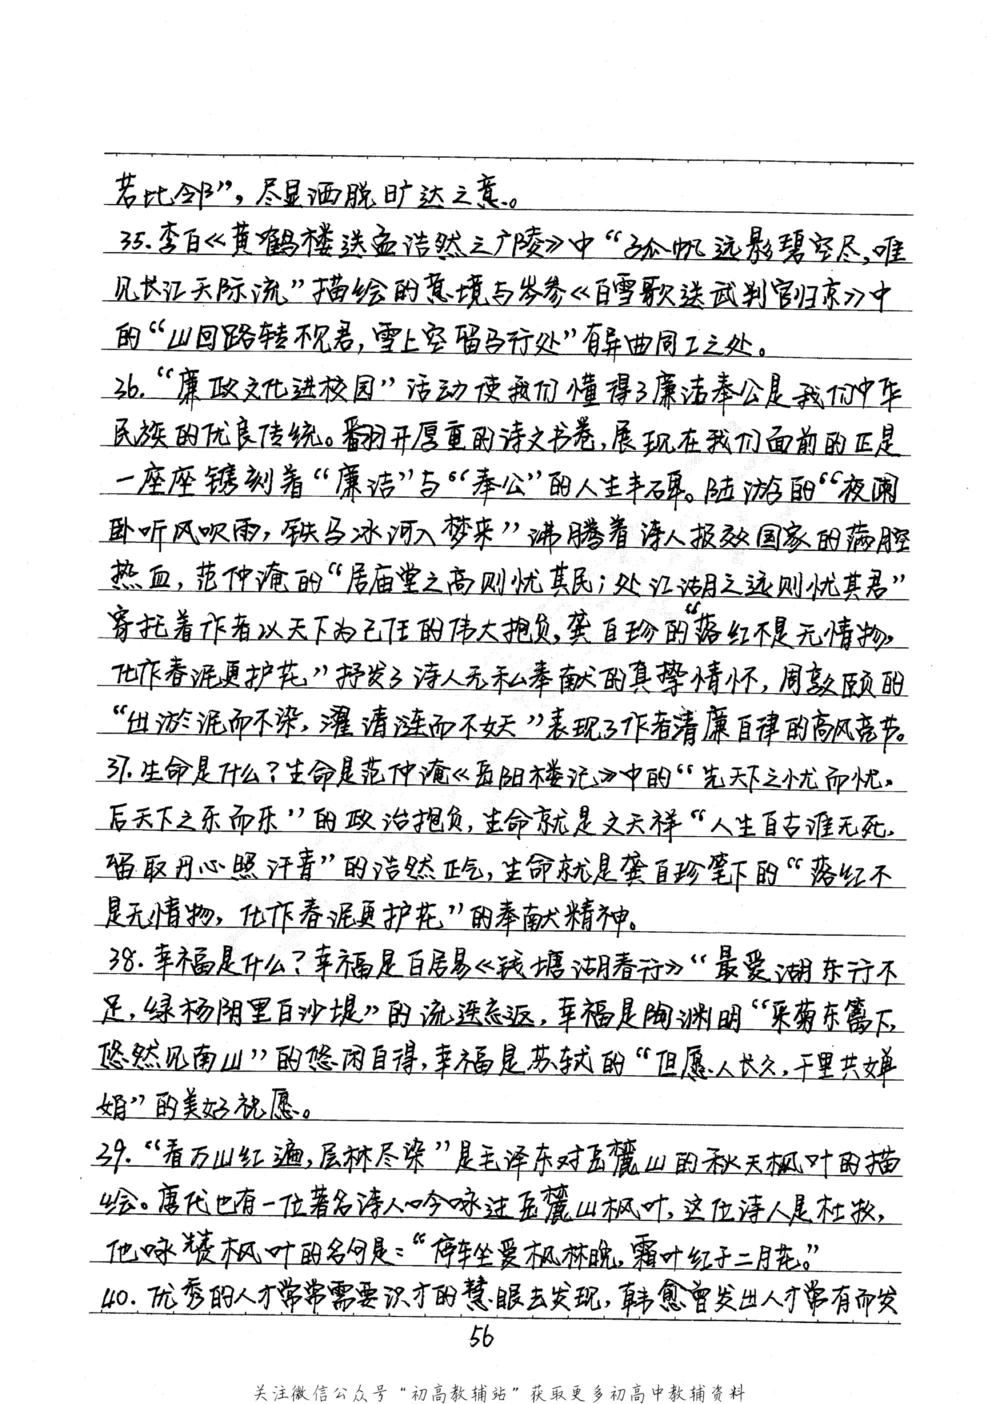 若比邻”，尽显洒脱旷达之意。
35.李白《黄鹤楼送孟浩然之广陵》中“孤帆远影碧空尽，唯
见长江天际流”描绘的意境与岑参《白雪歌送武判官归京》中
的“山回路转不见君，雪上空留马行处”有异曲同工之处。
36.“廉政文化进校园”活动使我们懂得了廉洁奉公是我们中华
民族的优良传统。翻开厚重的诗文书卷，展现在我们面前的正是
一座座镌刻着“廉洁”与“奉公”的人生丰碑。陆游的“夜阑
卧听风吹雨，铁马冰河入梦来”沸腾着诗人报效国家的满腔
热血，范仲淹的“居庙堂之高则忧其民；处江湖之远则忧其君”
寄托着作者以天下为己任的伟大抱负，龚自珍的“落红不是无情物，
化作春泥更护花”抒发了诗人无私奉献的真挚情怀，周敦颐的
“出淤泥而不染，濯清涟而不妖”表现了作者清廉自律的高风亮节。
37.生命是什么？生命是范仲淹《岳阳楼记》中的“先天下之忧而忧，
后天下之乐而乐”的政治抱负，生命就是文天祥“人生自古谁无死，
留取丹心照汗青”的浩然正气，生命就是龚自珍笔下的“落红不
是无情物，化作春泥更护花”的奉献精神。
38.幸福是什么？幸福是白居易《钱塘湖春行》“最爱湖东行不
足，绿杨阴里白沙堤”的流连忘返，幸福是陶渊明“采菊东篱下，
悠然见南山”的悠闲自得，幸福是苏轼的“但愿人长久，千里共婵
娟”的美好祝愿。
39.“看万山红遍，层林尽染”是毛泽东对岳麓山的秋天枫叶的描
绘。唐代也有一位著名诗人吟咏过岳麓山枫叶，这位诗人是杜牧，
他咏赞枫叶的名句是：“停车坐爱枫林晚，霜叶红于二月花。”
40.优秀的人才常常需要识才的慧眼去发现，韩愈曾发出人才常有而发
56
关注微信公众号“初高教辅站”获取更多初高中教辅资料